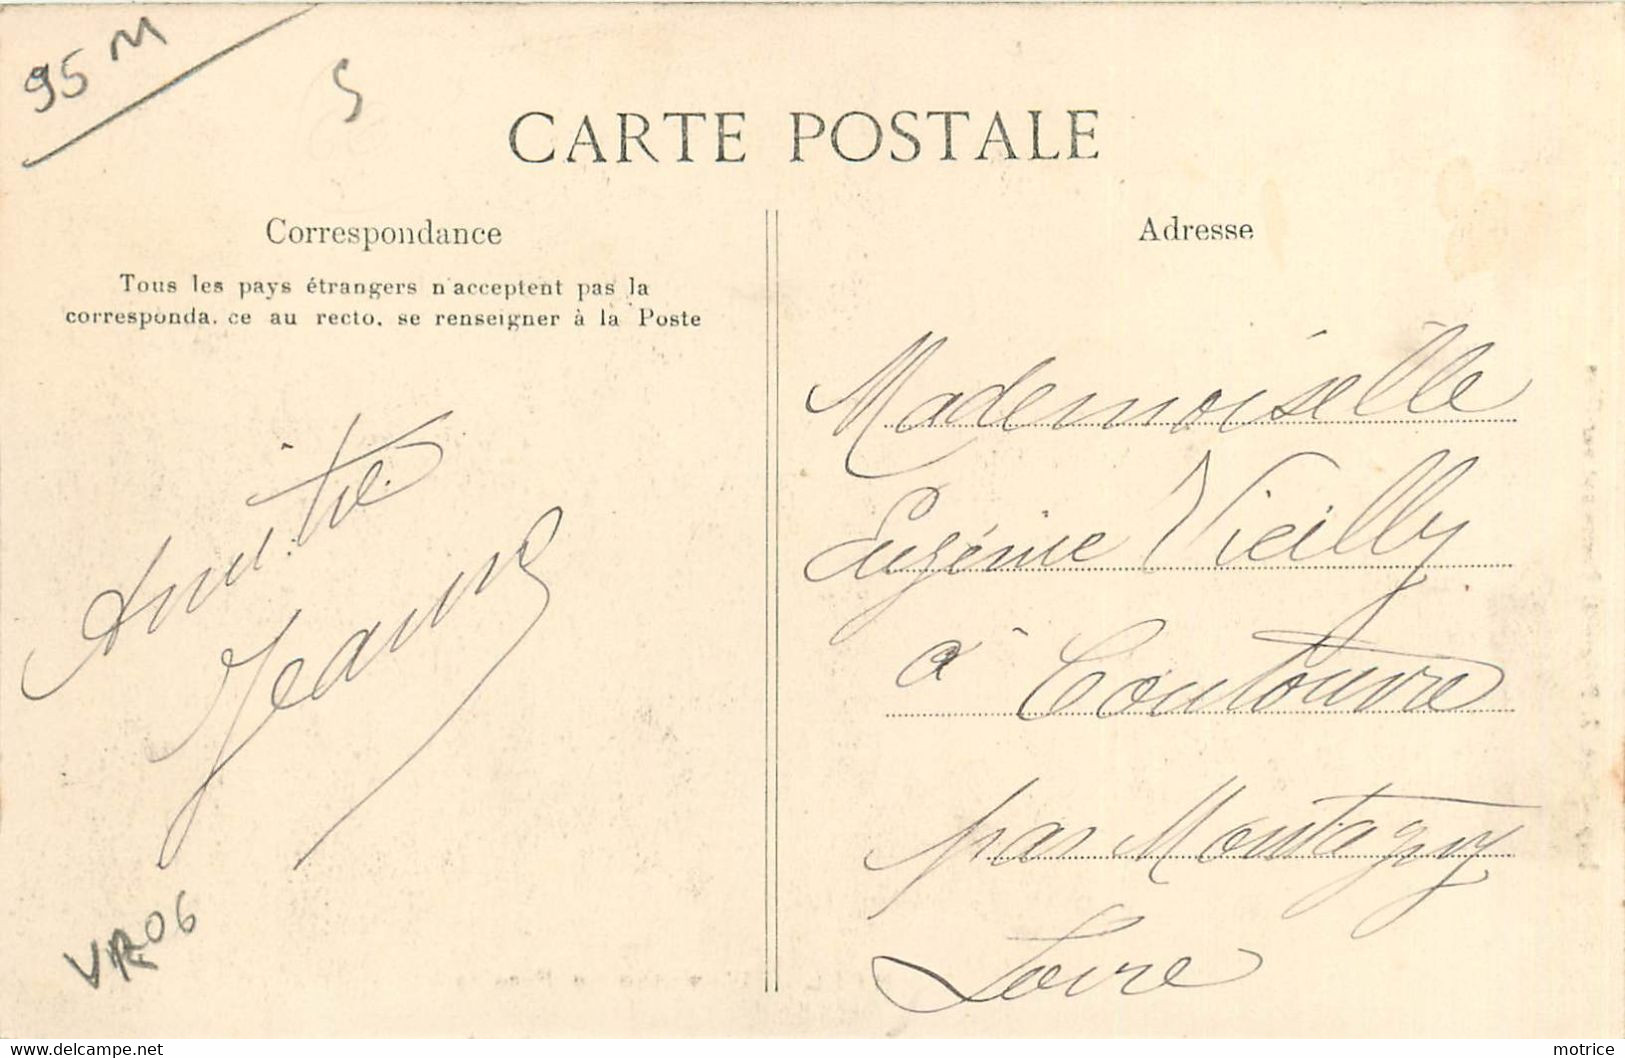 95 M
5
CARTE POSTALE
Correspondance
Tous les pays étrangers n'acceptent pas la
corresponda. ce au recto, se renseigner à la Poste
Amitié
Jeanne
VR06
Adresse
Mademoiselle
Eugénie Vieilly
à Coutouvre
par Montagny
Loire
http://www.delcampe.net
motrice